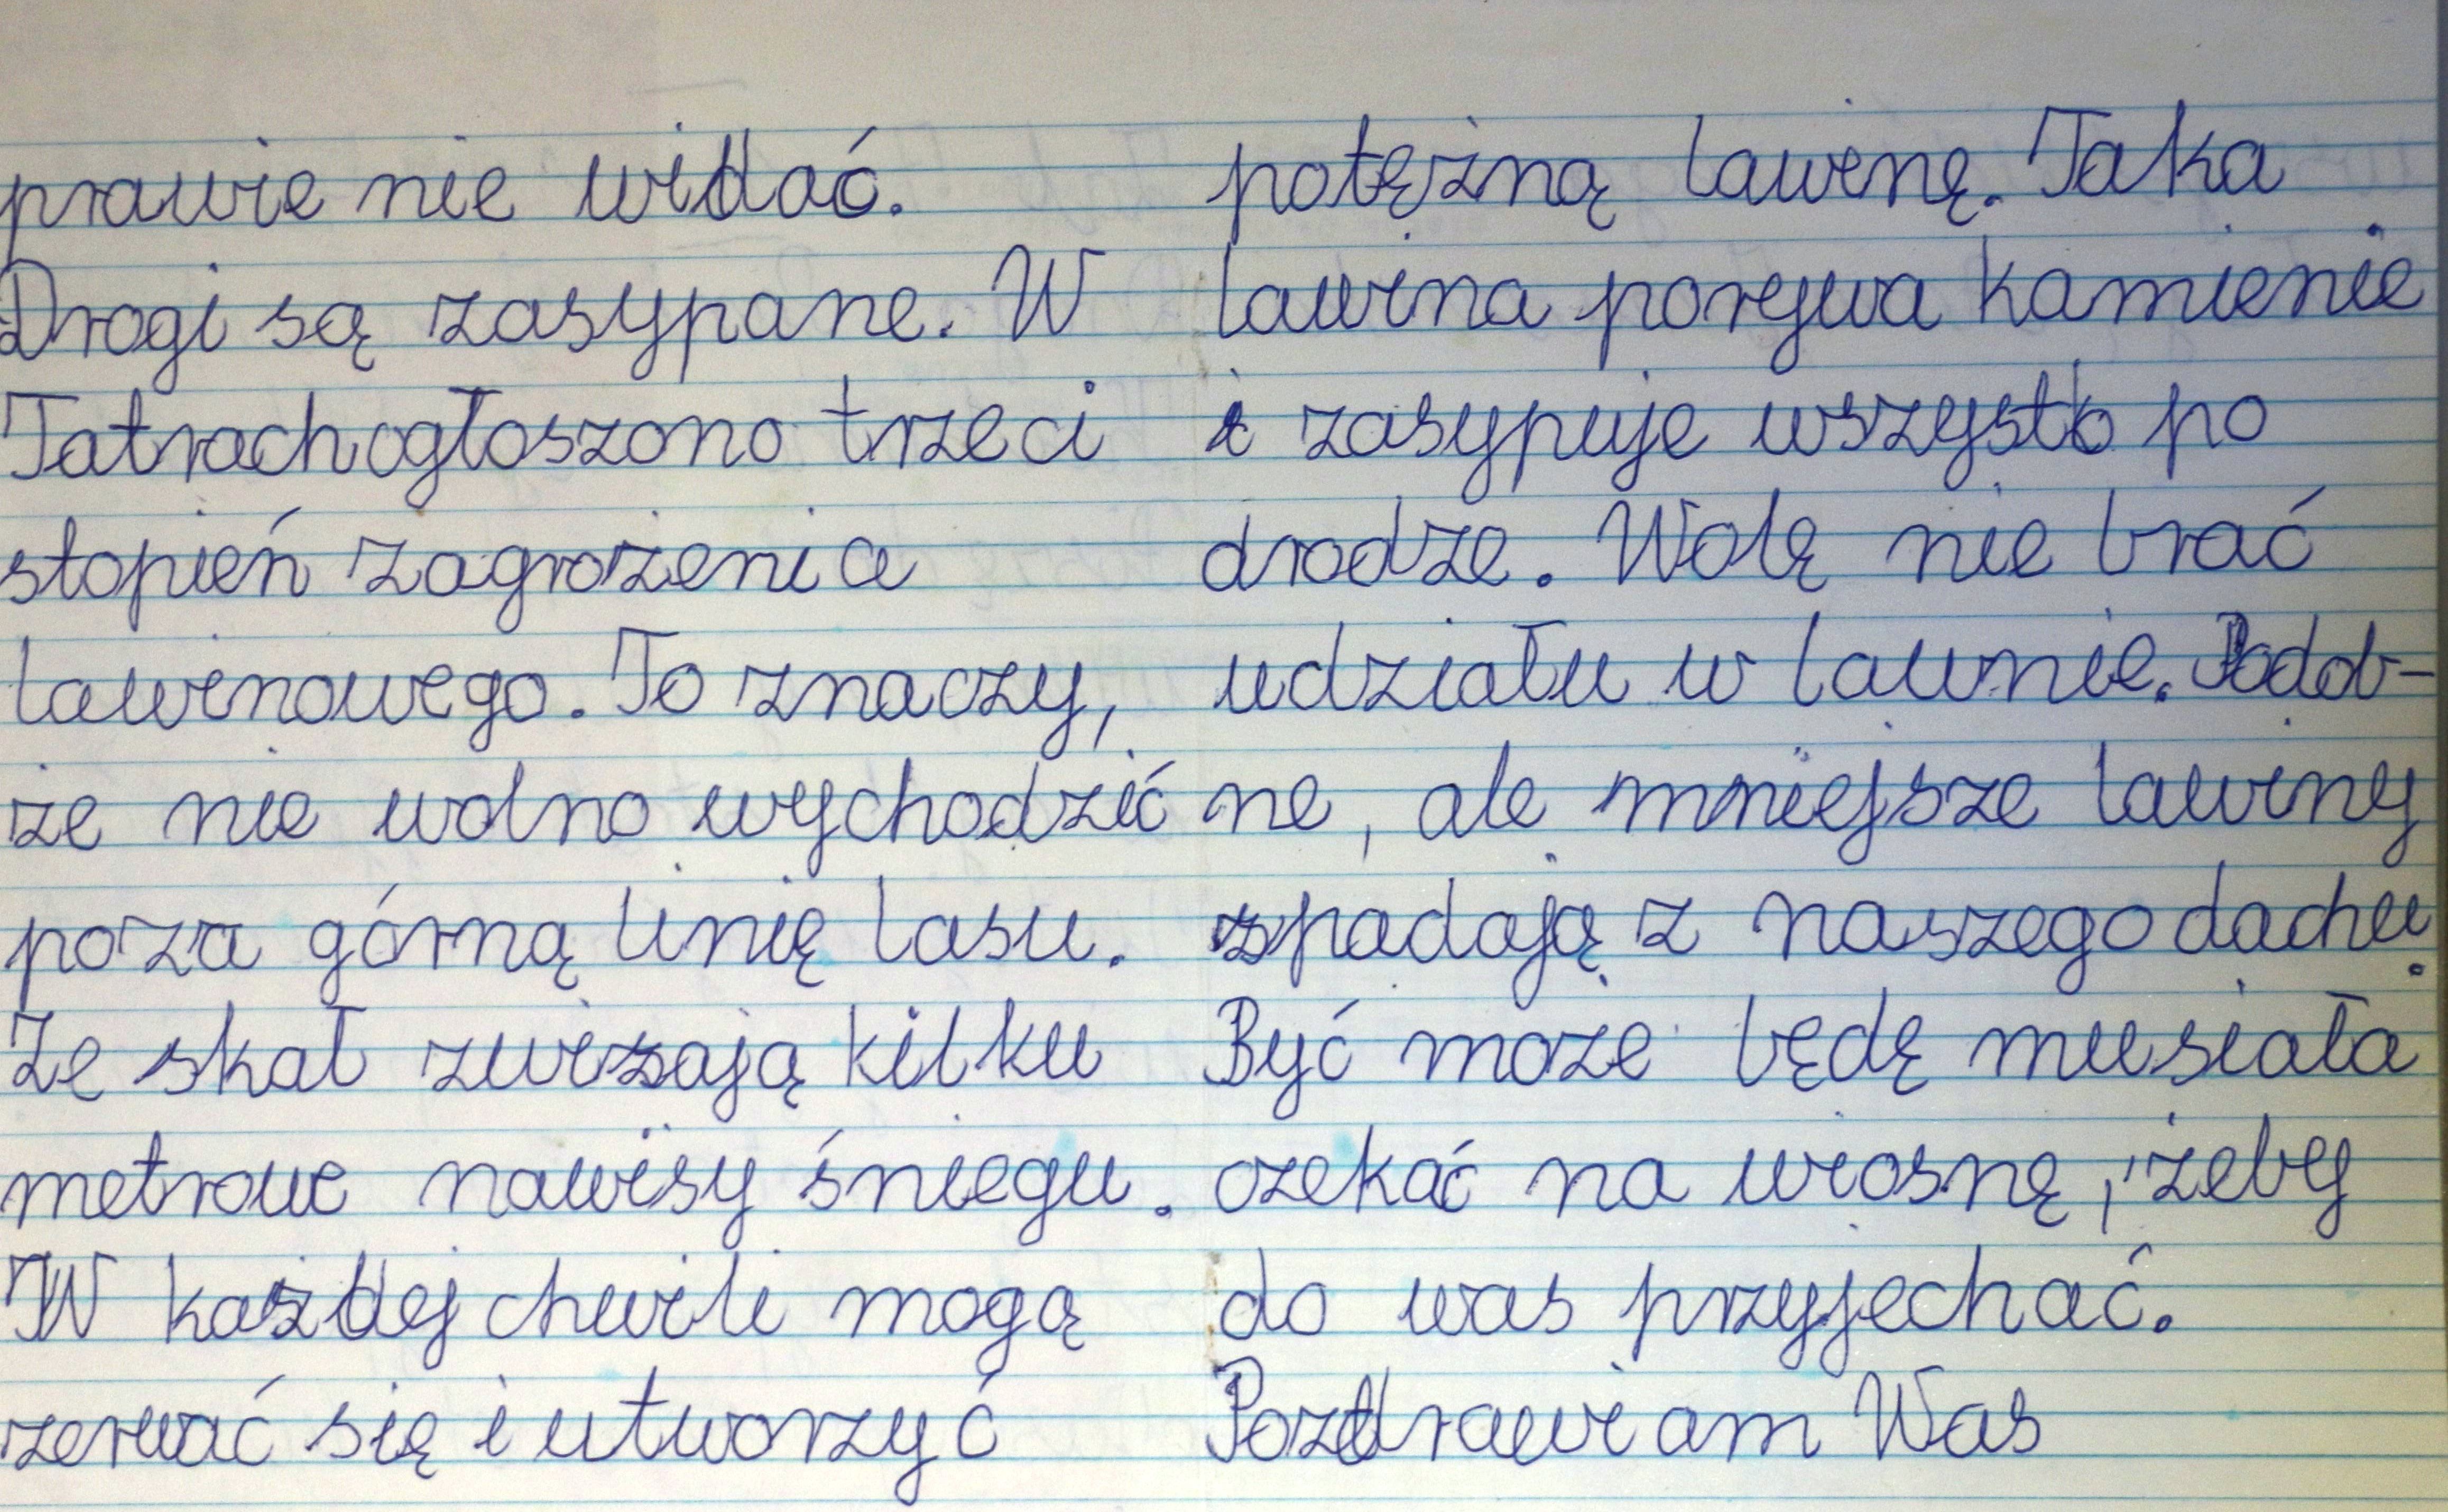 prawie nie widać.
Drogi są zasypane. W
Tatrach ogłoszono trzeci
stopień zagrożenia
lawinowego. To znaczy,
że nie wolno wychodzić
poza górną linię lasu.
Ze skał zwisają kilku
metrowe nawisy śniegu.
W każdej chwili mogą
zerwać się i utworzyć
potężną lawinę. Taka
lawina porywa kamienie
i zasypuje wszystko po
drodze. Wolę nie brać
udziału w lawnie. Podob-
ne, ale mniejsze lawiny
spadają z naszego dachu.
Być może będę musiała
czekać na wiosnę, żeby
do was przyjechać.
Pozdrawiam Was